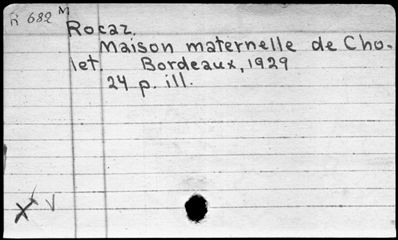 n 682 M
Rocaz.
Maison maternelle de Cho-
let. Bordeaux, 1929
24 p. ill.
X V